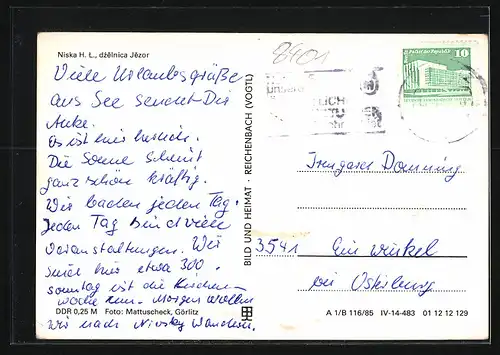 8401
Niska H. L., dźělnica Jězor
Viele Urlaubsgrüße
aus See sendet Dir
Anke.
Es ist hier herrlich.
Die Sonne scheint
ganz schön kräftig.
Wir baden jeden Tag.
Jeden Tag sind viele
Veranstaltungen. Wir
sind hier etwa 300.
Sonntag ist die Kirchen-
woche zum. Morgen wollen
wir nach Niesky wandern.
DDR 0,25 M Foto: Mattuscheck, Görlitz
BILD UND HEIMAT · REICHENBACH (VOGTL)
10
LICH
Irmgard
3541 Einwinkel
bei Osterburg
A 1/B 116/85 IV-14-483 01 12 12 129